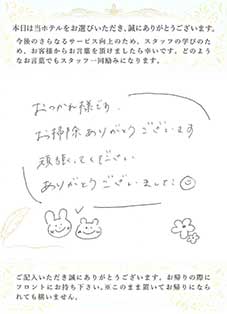 本日は当ホテルをお選びいただき、誠にありがとうございます。
今後のさらなるサービス向上のため、スタッフの学びのた
め、お客様からお言葉を頂けましたら幸いです。どのよう
なお言葉でもスタッフ一同励みになります。
おつかれ様です。
お掃除ありがとうございます
頑張ってください
ありがとうございました!
ご記入いただき誠にありがとうございます。お帰りの際に
フロントにお持ち下さい。※このまま置いてお帰りになられ
ても構いません。